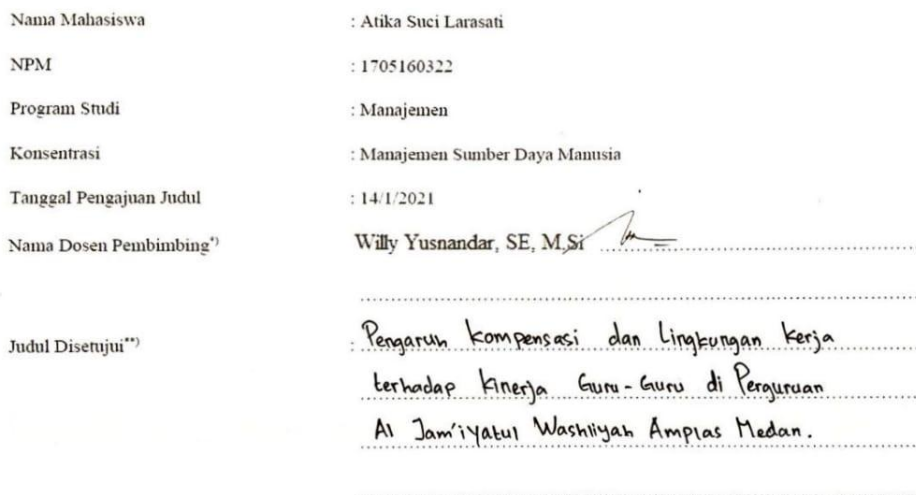 Nama Mahasiswa : Atika Suci Larasati
NPM : 1705160322
Program Studi : Manajemen
Konsentrasi : Manajemen Sumber Daya Manusia
Tanggal Pengajuan Judul : 14/1/2021
Nama Dosen Pembimbing*) Willy Yusnandar, SE, M,Si
Judul Disetujui**) : Pengaruh kompensasi dan Lingkungan kerja
terhadap kinerja Guru-Guru di Perguruan
Al Jam'iyatul Washliyah Amplas Medan.